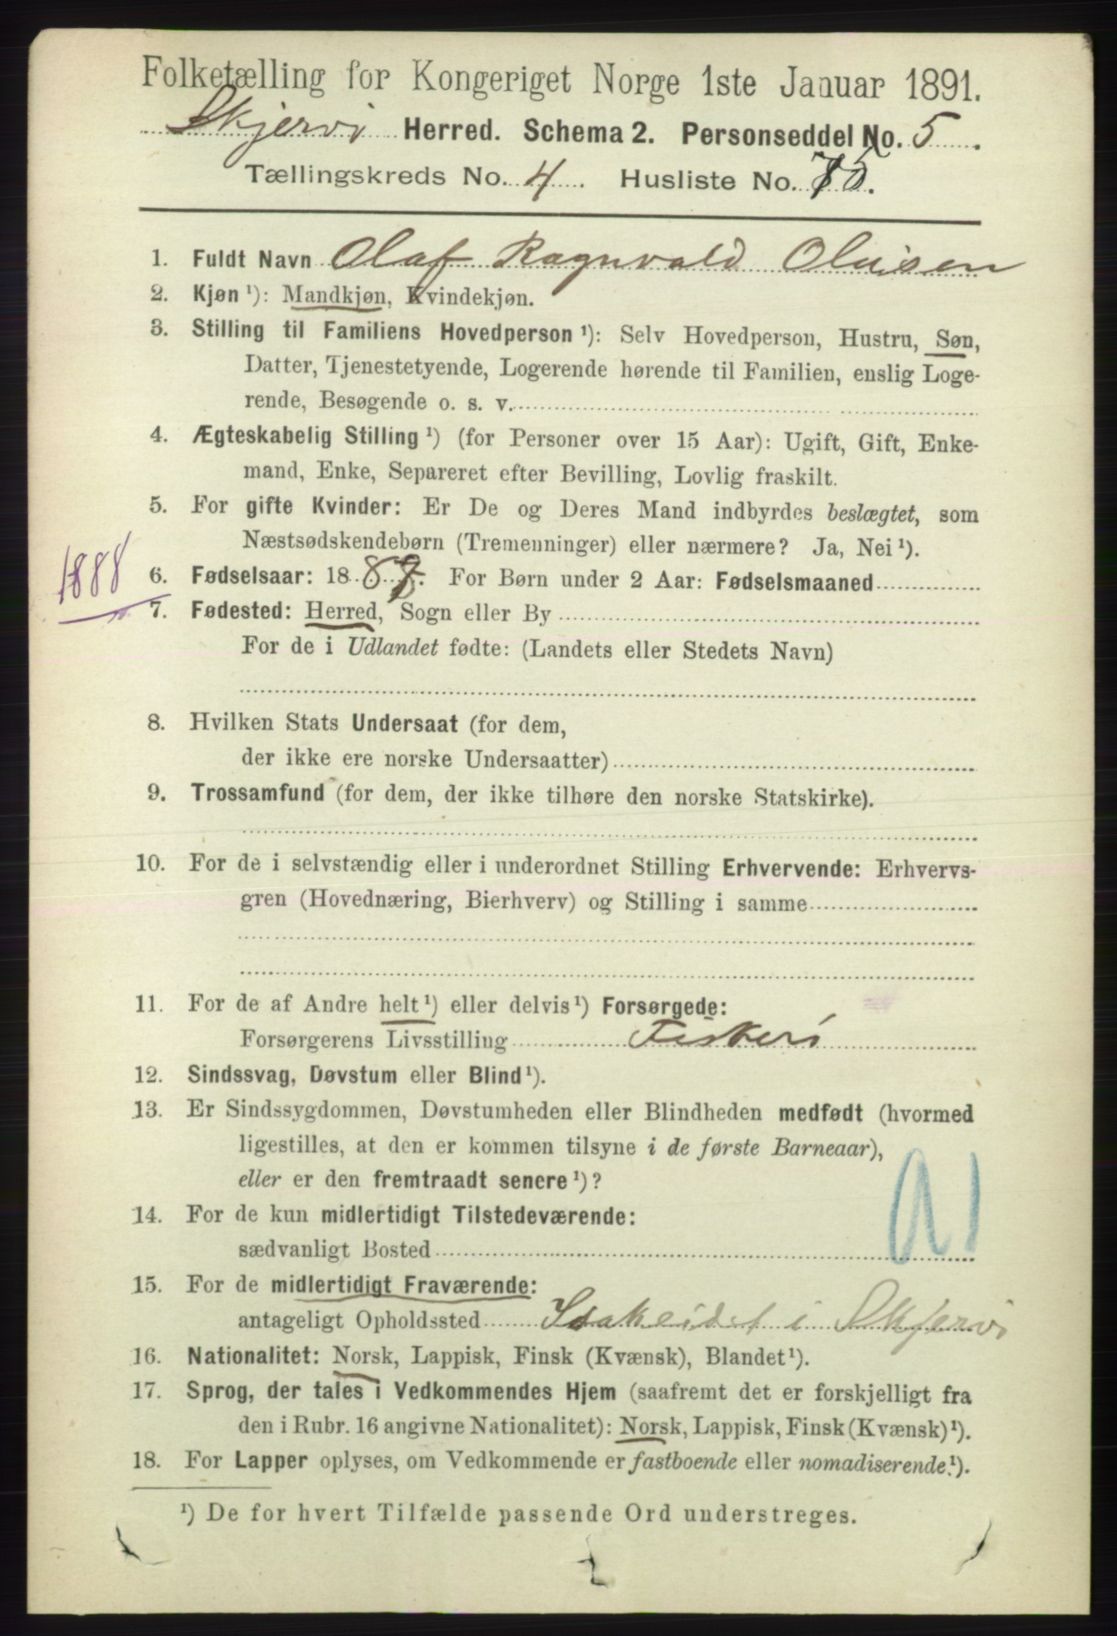 Folketælling for Kongeriget Norge 1ste Januar 1891.
Skjervø Herred. Schema 2. Personseddel No. 5.
Tællingskreds No. 4. Husliste No. 75.
1. Fuldt Navn Olaf Ragnvald Olaisen
2. Kjøn ¹): Mandkjøn, Kvindekjøn.
3. Stilling til Familiens Hovedperson ¹): Selv Hovedperson, Hustru, Søn,
Datter, Tjenestetyende, Logerende hørende til Familien, enslig Loge-
rende, Besøgende o. s. v.
4. Ægteskabelig Stilling ¹) (for Personer over 15 Aar): Ugift, Gift, Enke-
mand, Enke, Separeret efter Bevilling, Lovlig fraskilt.
5. For gifte Kvinder: Er De og Deres Mand indbyrdes beslægtet, som
Næstsødskendebørn (Tremenninger) eller nærmere? Ja, Nei ¹).
1888
6. Fødselsaar: 1887. For Børn under 2 Aar: Fødselsmaaned
7. Fødested: Herred, Sogn eller By
For de i Udlandet fødte: (Landets eller Stedets Navn)
8. Hvilken Stats Undersaat (for dem,
der ikke ere norske Undersaatter)
9. Trossamfund (for dem, der ikke tilhøre den norske Statskirke).
10. For de i selvstændig eller i underordnet Stilling Erhvervende: Erhvervs-
gren (Hovednæring, Bierhverv) og Stilling i samme
11. For de af Andre helt ¹) eller delvis ¹) Forsørgede:
Forsørgerens Livsstilling Fiskeri
12. Sindssvag, Døvstum eller Blind ¹).
13. Er Sindssygdommen, Døvstumheden eller Blindheden medfødt (hvormed
ligestilles, at den er kommen tilsyne i de første Barneaar),
eller er den fremtraadt senere ¹)?
14. For de kun midlertidigt Tilstedeværende:
sædvanligt Bosted
15. For de midlertidigt Fraværende:
antageligt Opholdssted Isakeidet i Skjervø
16. Nationalitet: Norsk, Lappisk, Finsk (Kvænsk), Blandet ¹).
17. Sprog, der tales i Vedkommendes Hjem (saafremt det er forskjelligt fra
den i Rubr. 16 angivne Nationalitet): Norsk, Lappisk, Finsk (Kvænsk) ¹).
18. For Lapper oplyses, om Vedkommende er fastboende eller nomadiserende ¹).
¹) De for hvert Tilfælde passende Ord understreges.